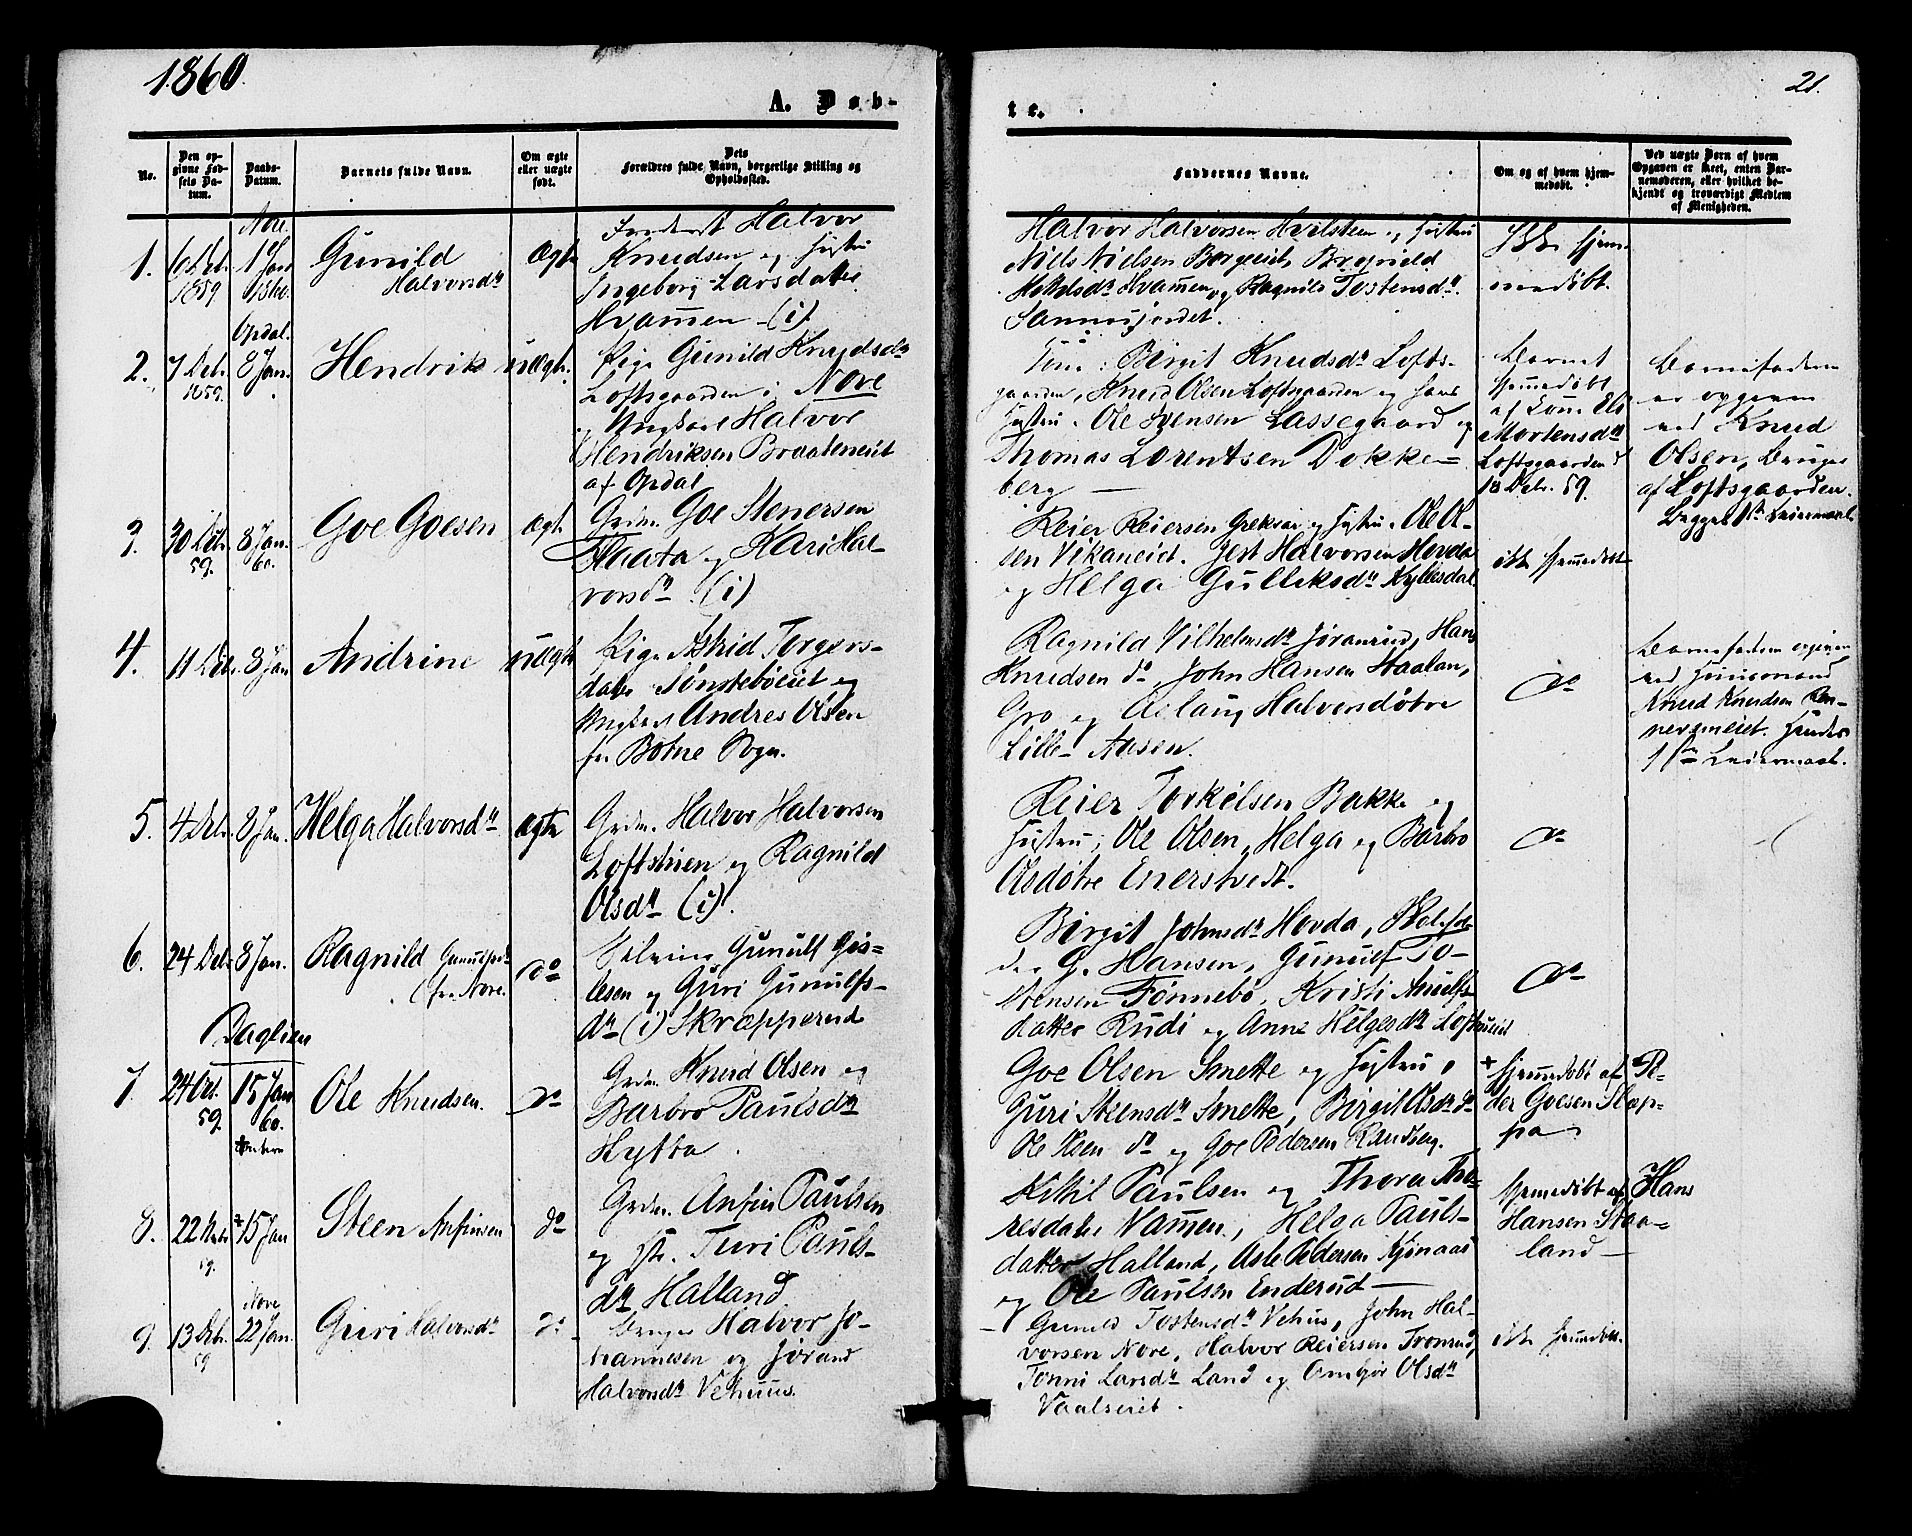 1860.
21.
A. Døb-
te.
No.
Den op-
givne Fød-
sels Da-
tum.
Daabs-
Datum.
Barnets fulde Navn.
Om ægte
eller uægte
født.
Dets
Forældres fulde Navn, borgerlige Stilling og
Opholdssted.
Faddernes Navne.
Om og af hvem hjem-
medøbt.
Ved uægte Børn af hvem
Opgaven er skeet, enten Bar-
nemoderen, eller hvilket be-
kjendt og troværdigt Medlem
af Menigheden.
Nore
1.
6 Debr.
1859
1 Jan
1860.
Gunild
Halvorsdr
Ægte
Halvor
Knudsen og Hustru
Ingeborg Larsdatter
Hvammen (i)
Halvor Halvorsen Hvilsteen og Hustru
Niels Nielsen Borgeeiet,
og Ragnild Tostensdr
ikke hjem-
medøbt.
Opdal.
2.
7 Debr.
1859.
8 Jan.
Hendrik
uÆgte.
Pige Gunild Knudsdr
Loftsgaarden i Nore
og Ungkarl Halvor
Hendriksen Braateneiet
af Opdal
Birgit Knudsdr Lofts-
gaarden, Knud Olsen Loftsgaarden og hans
Hustru. Ole Svensen Lassegaard og
Thomas Lorentsen Dokke-
berg
Barnet
hjemmedøbt
af Els
Mortensdr
Loftsgaarden d
18 Debr. 59.
Barnefaderen
er opgiven
ved Knud
Olsen, Bruger
af Loftsgaarden.
Begges 1ste Leiermaal
3.
30 Debr.
59.
8 Jan.
60.
Goe Goesen
ægte
Grdm. Goe Stenersen
Haata og Kari Hal-
vorsdr (i)
Reier Reiersen og Hustru. Ole Ol-
sen Vikaneiet. Halvorsen Hovda
og Helga Gulliksdr Kyllesdal
ikke hjemmedøbt
4.
11 Debr.
8 Jan
Andrine
uægte
Pige Astrid Torgers-
datr Tønstebøeiet og
Ungkarl Andres Olsen
fra Botne Sogn.
Ragnild Vilhelmsdr Jøranrud, Hans
Knudsen do, John Hansen Haalan,
Gro og Aslaug Halvorsdøtre
Lille- Aasen.
do
Barnefaderen opgiven
ved Huusmand
Knud Knudsen
Hendes
1ste Leiermaal.
5.
4 Debr.
8 Jan.
Helga Halvorsdr
ægte
Grdm. Halvor Halvorsen
Loftstuen og Ragnild
Olsdr (i).
Reier Torkelsen Bakke og
Hustru, Ole Olsen, Helga og Barbro
Olsdøtre Enerstvedt.
do
6.
24 Debr
8 Jan.
Ragnild
(fra Nore.
do
Gunulf Gis-
lesen og Guri Gunulfs-
dr (i) Skrapperud
Birgit Johnsdr Hovda,
G. Hansen, Gunulf To-
stensen Tønnebø, Kristi
datter Rudi og Anne Helgesdr
do
Daglien
7.
24 Oct.
59.
15 Jan
60.
Ole Knudsen.
do
Grdm. Knud Olsen og
Barbro Paulsdr
Hytta
Goe Olsen Smette og Hustru,
Guri Steensdr Smette, Birgit Olsdr do
Ole Olsen do og Goe Pedersen Randberg.
+ hjemmedøbt af Pe-
der Goesen Slep-
pa
8.
22 Nobr
59.
+15 Jan
Steen Anfinsen
do
Grdm. Anfin Paulsen
og Hstr. Turi Pauls-
dr Halland
Kittil Paulsen og Thora Tho-
resdatr Vammen, Helga Pauls-
datter Halland, Asle Pedersen Kjønaas
og Ole Paulsen Enderud
hjemmedøbt af Hans
Hansen Staa-
land
Nore
9.
13 Debr.
59
22 Jan.
Guri Halvorsdr
do
Bruger Halvor Jo-
hannesen og Jørand
Halvorsdr Vehuus.
Gunild Tostensdr Vehus, John Hal-
vorsen Nore, Halvor Reiersen Tronrud,
Tønni Larsdr Land og Olsdr
Vaalseiet.
ikke hjemmedøbt.